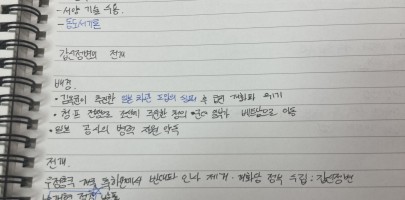 - 서양 기술 수용.
- 동도서기론
갑신정변의 전개
배경.
• 김옥균이 추진한 일본 차관 도입의 실패 → 급진 개화파 위기
• 청프 전쟁으로 조선에 주둔한 청의 군대 일부가 베트남으로 이동
• 일본 공사의 병력 지원 약속
전개.
우정총국 개국 축하연에서 민씨 제거. 개화당 정부 수립 : 갑신정변